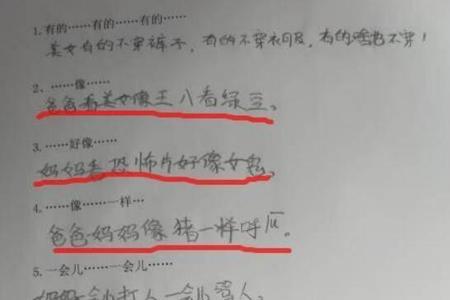 1.有的……有的……有的……
美女有的不穿裤子，有的不穿衣服，有的啥也不穿！
2、……像……
爸爸看美女像王八看绿豆。
3.……好像……
妈妈看恐怖片好像女鬼。
4.……像……一样…
爸爸妈妈像猪一样呼
5.一会儿……一会儿……
妈妈一会儿打人一会儿骂人。